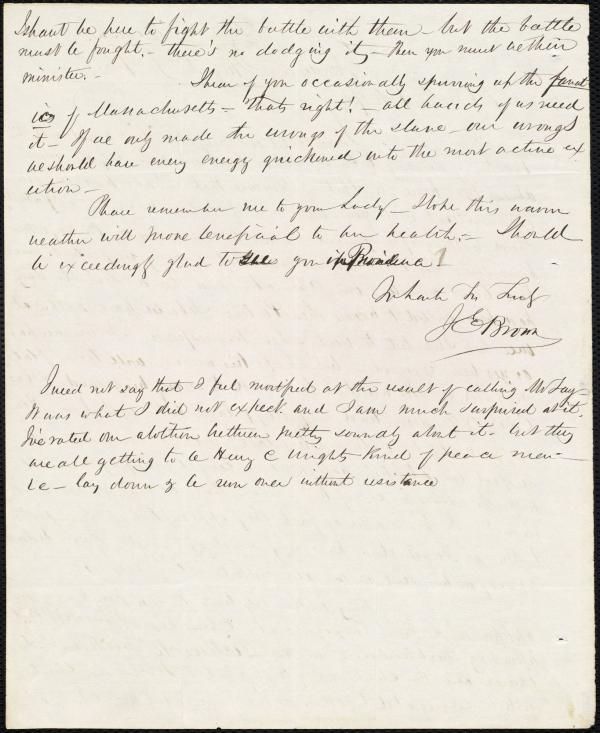 I shan't be here to fight the battle with them - but the battle
must be fought. - there's no dodging it, - then you must be their
minister. -
I hear of you occasionally spurring up the fanat
ics of Massachusetts - that's right! - all hands of us need
it - If we only made the wrongs of the slave - our wrongs
we should have every energy quickened into the most active ex
ertion -
Please remember me to your Lady - I hope this warm
weather will prove beneficial to her health. - Should
be exceedingly glad to see you in Providence
In haste Yrs Truly
J E Brown
I need not say that I feel mortified at the result of calling Mr Fay -
It was what I did not expect and I am much surprised at it.
I've rated our abolition bretheren pretty soundly about it - but they
are all getting to be Henry C Wright's kind of peace men -
i.e - lay down & be run over without resistance